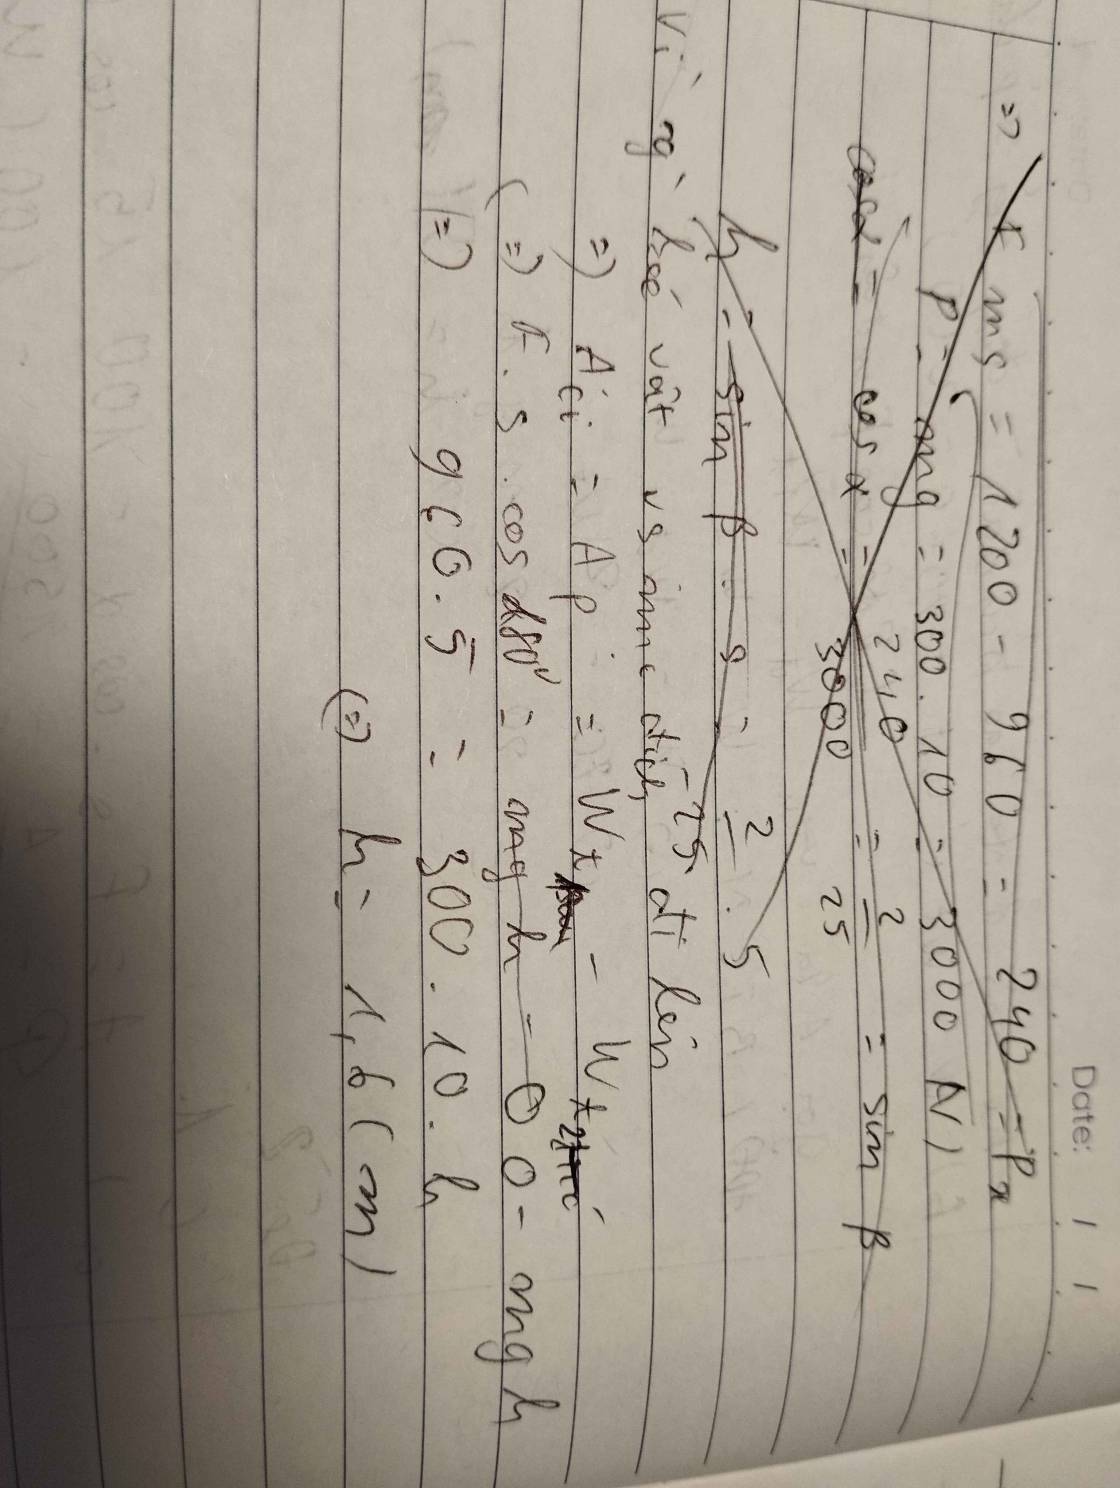 Date: / /
=> Fms = 1200 - 960 = 240 = Px
P = mg = 300.10 = 3000 N)
cosα = cos α = 240/3000 = 2/25 = sin β
h = sin β . s = 2/25 . 5
Vì ng` kéo vật đi lên
=> Aci = Ap = Wt - Wt2
(=) F.s.cos 180° = mgh - 0 0 - mgh
(=) 960.5 = 300.10.h
(=) h = 1,6 (m)